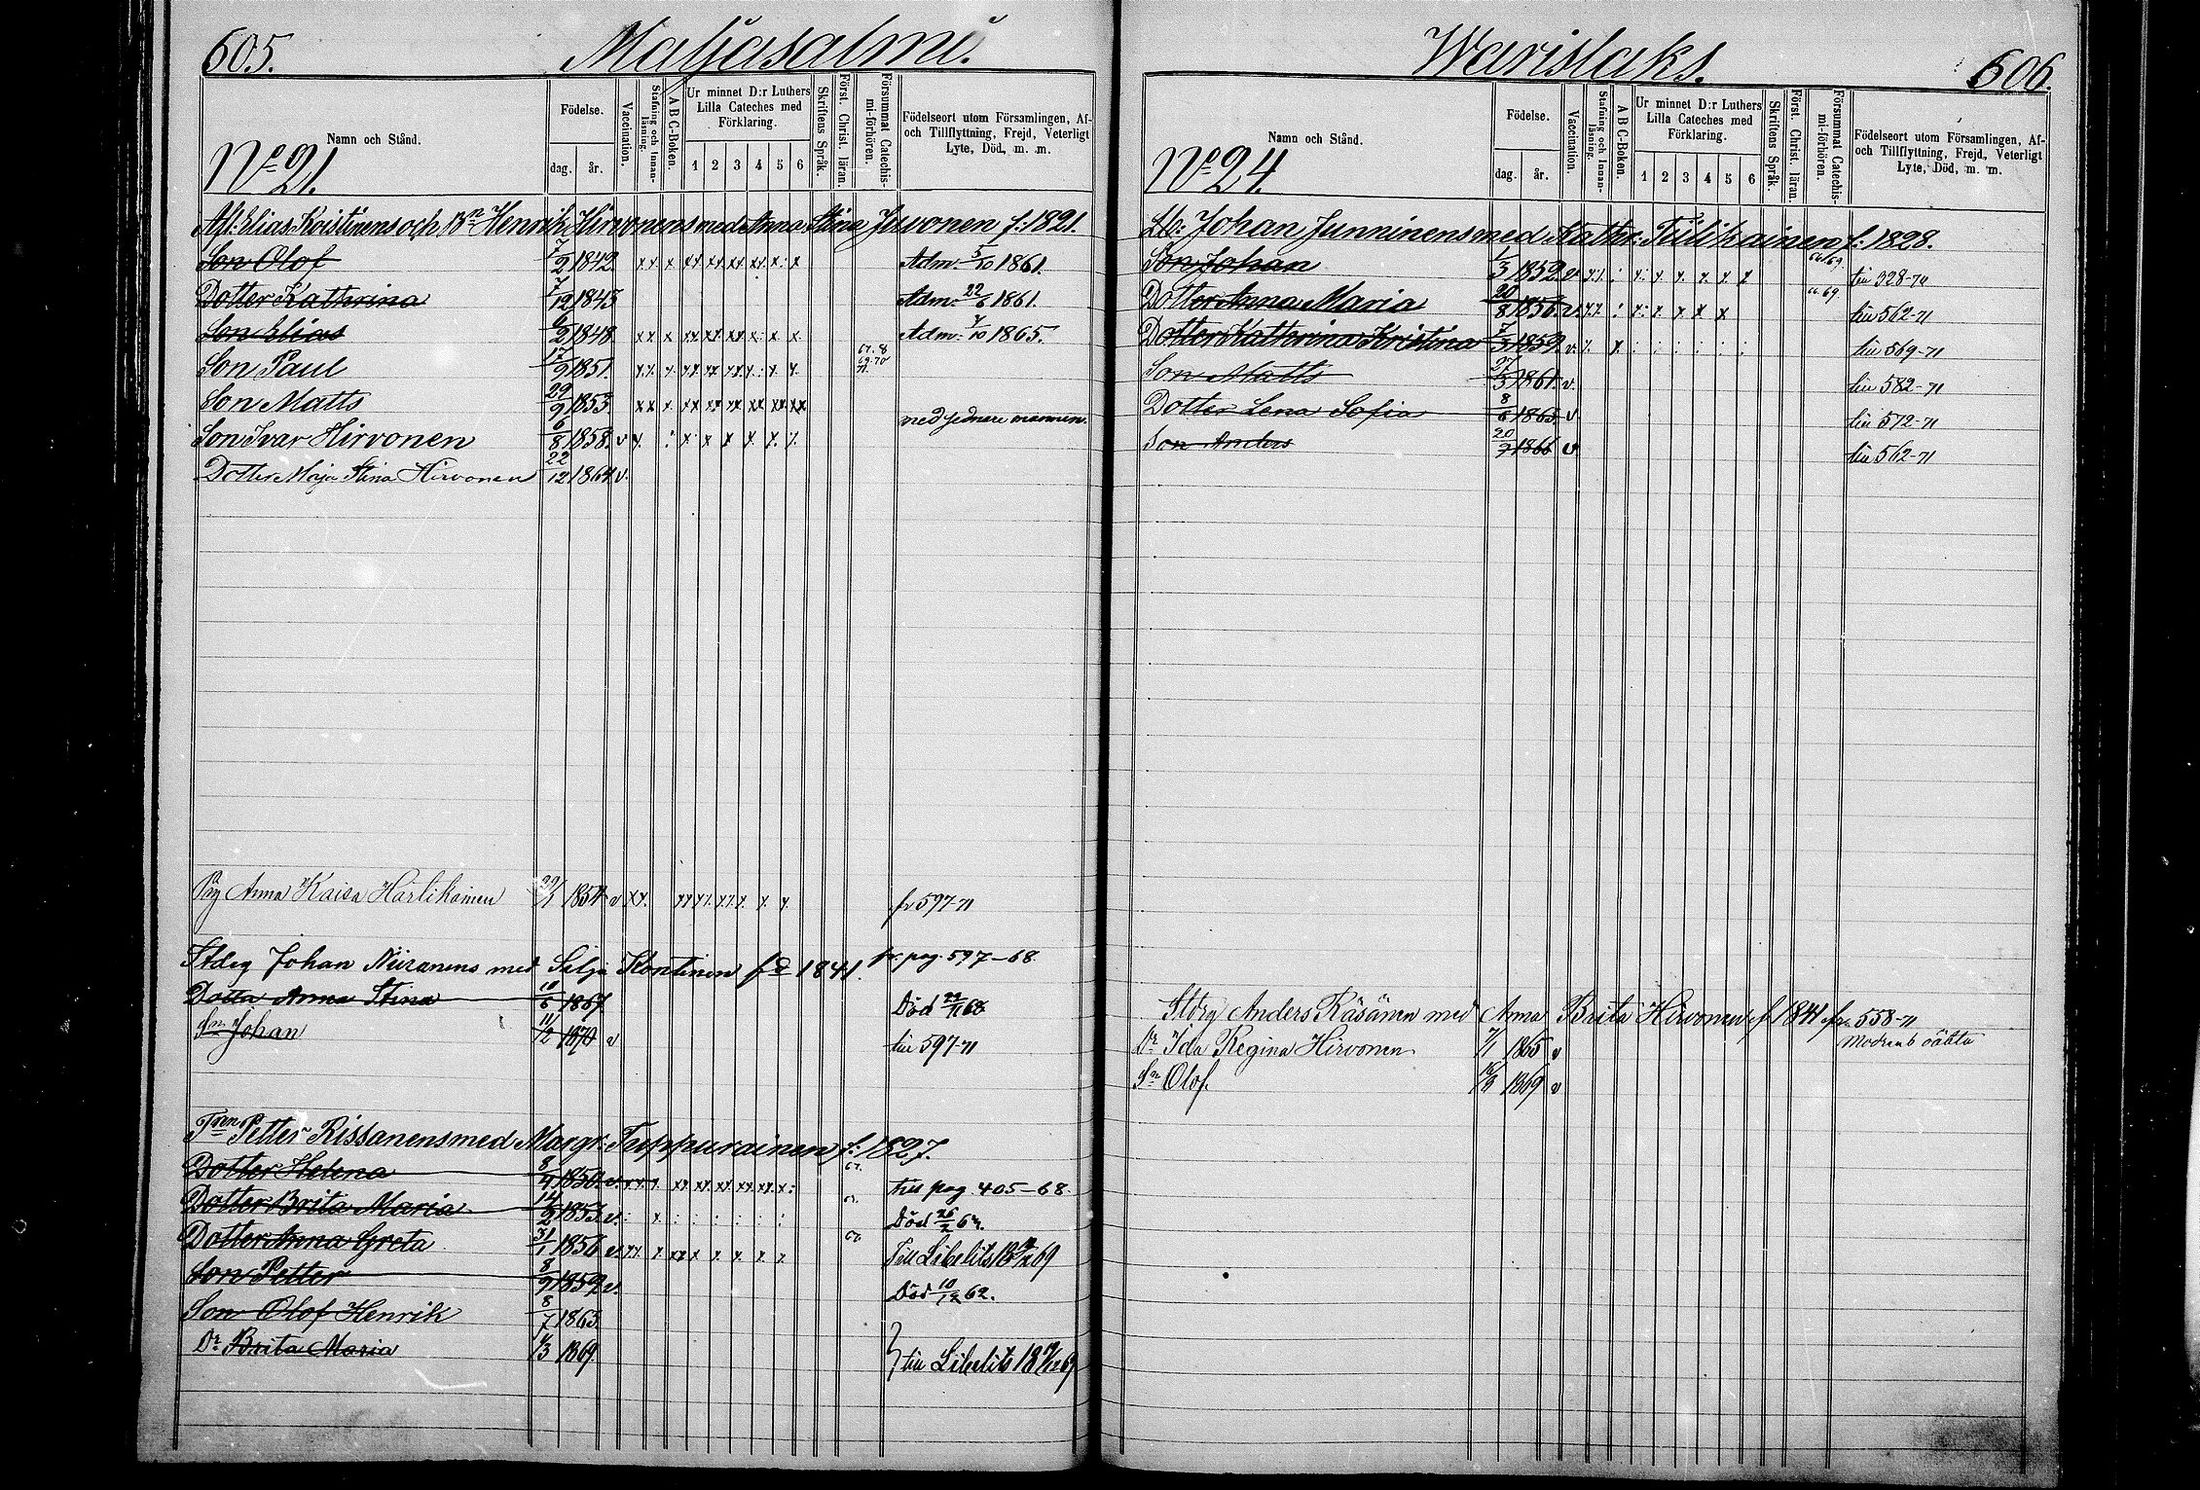 605. Maljasalmi.
Namn och Stånd.
Födelse.
dag. år.
Vaccination.
Stafning och Innan-läsning.
A B C-Boken.
Ur minnet D:r Luthers Lilla Cateches med Förklaring.
1 2 3 4 5 6
Skriftens Språk.
Först. Christ. läran.
Försummat Catechis-mi-förhören.
Födelseort utom Församlingen, Af-
och Tillflyttning, Frejd, Veterligt
Lyte, Död, m. m.
No 21.
Afl: Elias Koistinens och Bn Henrik Hirvonens med Anna Stina Juvonen f: 1821.
Son Olof 7/2 1842 Adm. 5/10 1861.
Dotter Kathrina 7/12 1843 Adm. 22/6 1861.
Son Elias 6/2 1848 Adm. 7/10 1865.
Son Paul 17/9 1851. 67. 8 69. 70 71
Son Matts 29/9 1853
Son Ivar Hirvonen 6/8 1858. v med sednare mannen.
Dotter Maja Stina Hirvonen 22/12 1864 v.
Anna Kaisa 1854 v fr 597-71
Stdeg Johan Niiranens med Silja Kontinen fd 1841. fr. pag. 597-68.
Dotta Anna Stina 10/6 1867 Död 68
Sn Johan 11/2 1870 v till 597-71
Petter Rissanens med Margr: Tuppurainen f: 1827.
Dotter Helena 8/4 1850. v. 67. till pag. 405-68.
Dotter Brita Maria 14/2 1853. v. Död 26/2 67.
Dotter Anna Greta 31/1 1856 v. Till Libelits 18 /12 69
Son Petter 8/9 1859 v. Död 10/12 62.
Son Olof Henrik 8/7 1863.
Dr Brita Maria 4/3 1869. till Libelits 18 /12 69
Warislaks. 606.
Namn och Stånd.
Födelse.
dag. år.
Vaccination.
Stafning och Innan-läsning.
A B C-Boken.
Ur minnet D:r Luthers Lilla Cateches med Förklaring.
1 2 3 4 5 6
Skriftens Språk.
Först. Christ. läran.
Försummat Catechis-mi-förhören.
Födelseort utom Församlingen, Af-
och Tillflyttning, Frejd, Veterligt
Lyte, Död, m. m.
No 24.
Johan Junninens med Kathr: Tiilikainen f: 1828.
Son Johan 1/3 1852 v. till 328-70
Dotter Anna Maria 20/8 1856. v. 69. till 562-71
Dotter Katherina Kristina 7/3 1859. v. till 569-71
Son Matts 27/3 1861. v. till 582-71
Dotter Lena Sofia 8/6 1865 v till 572-71
Son Anders 20/9 1866 v till 562-71
Stdrg Anders Räsänen med Anna Brita Hirvonen f. 1841 fr. 558-71
Dr Ida Regina Hirvonen 7/1 1865 v Modrens oäkta
Sn Olof. 1869 v